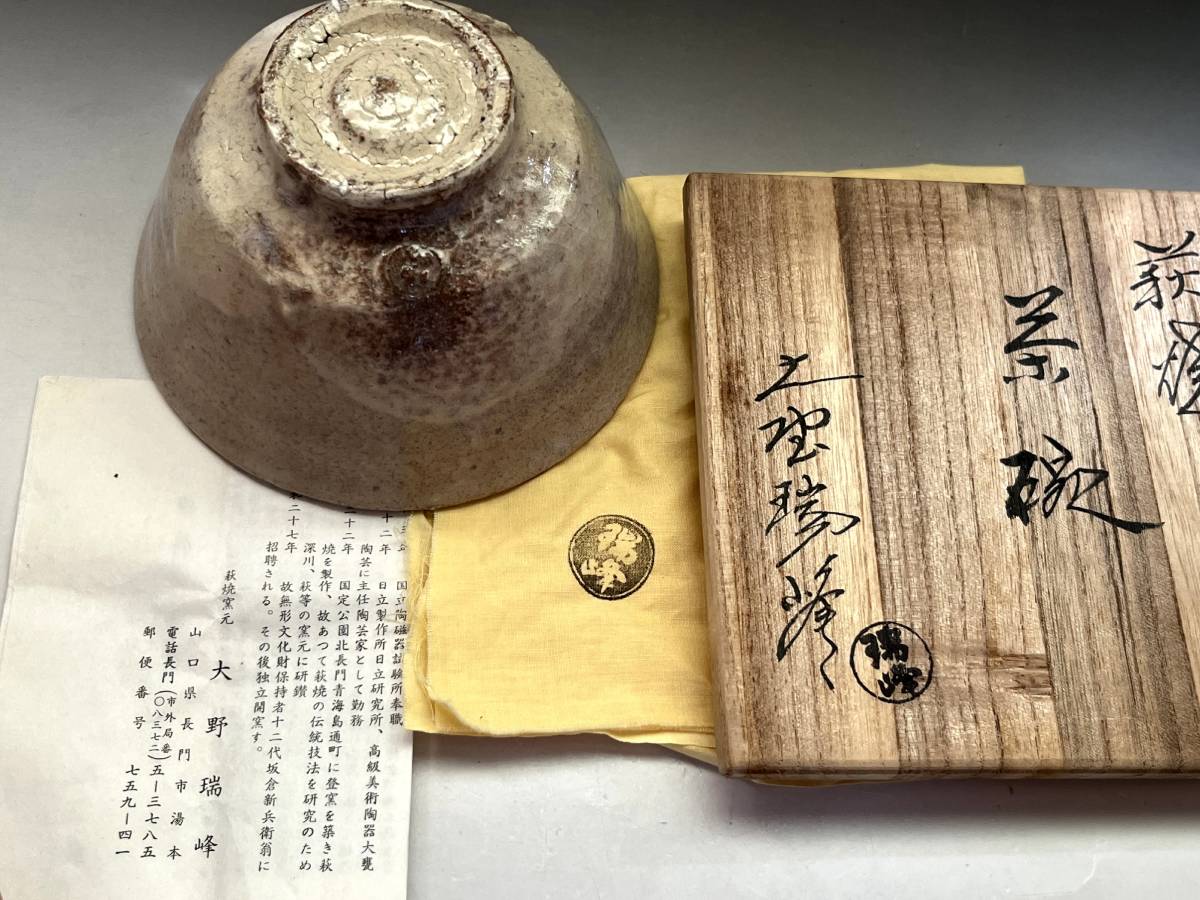 萩焼
茶碗
大野瑞峰
瑞峰
瑞峰
国立陶磁器試験所奉職
十二年 日立製作所日立研究所、高級美術陶器大甕
陶芸に主任陶芸家として勤務
二十二年 国定公園北長門青海島通町に登窯を築き萩
焼を製作、故あつて萩焼の伝統技法を研究のため
深川、萩等の窯元に研鑽
二十七年 故無形文化財保持者十二代坂倉新兵衛翁に
招聘される。その後独立開窯す。
萩焼窯元
大野瑞峰
山口県長門市湯本
電話長門(市外局番〇八三七二)五ー三七八五
郵便番号 七五九ー四一